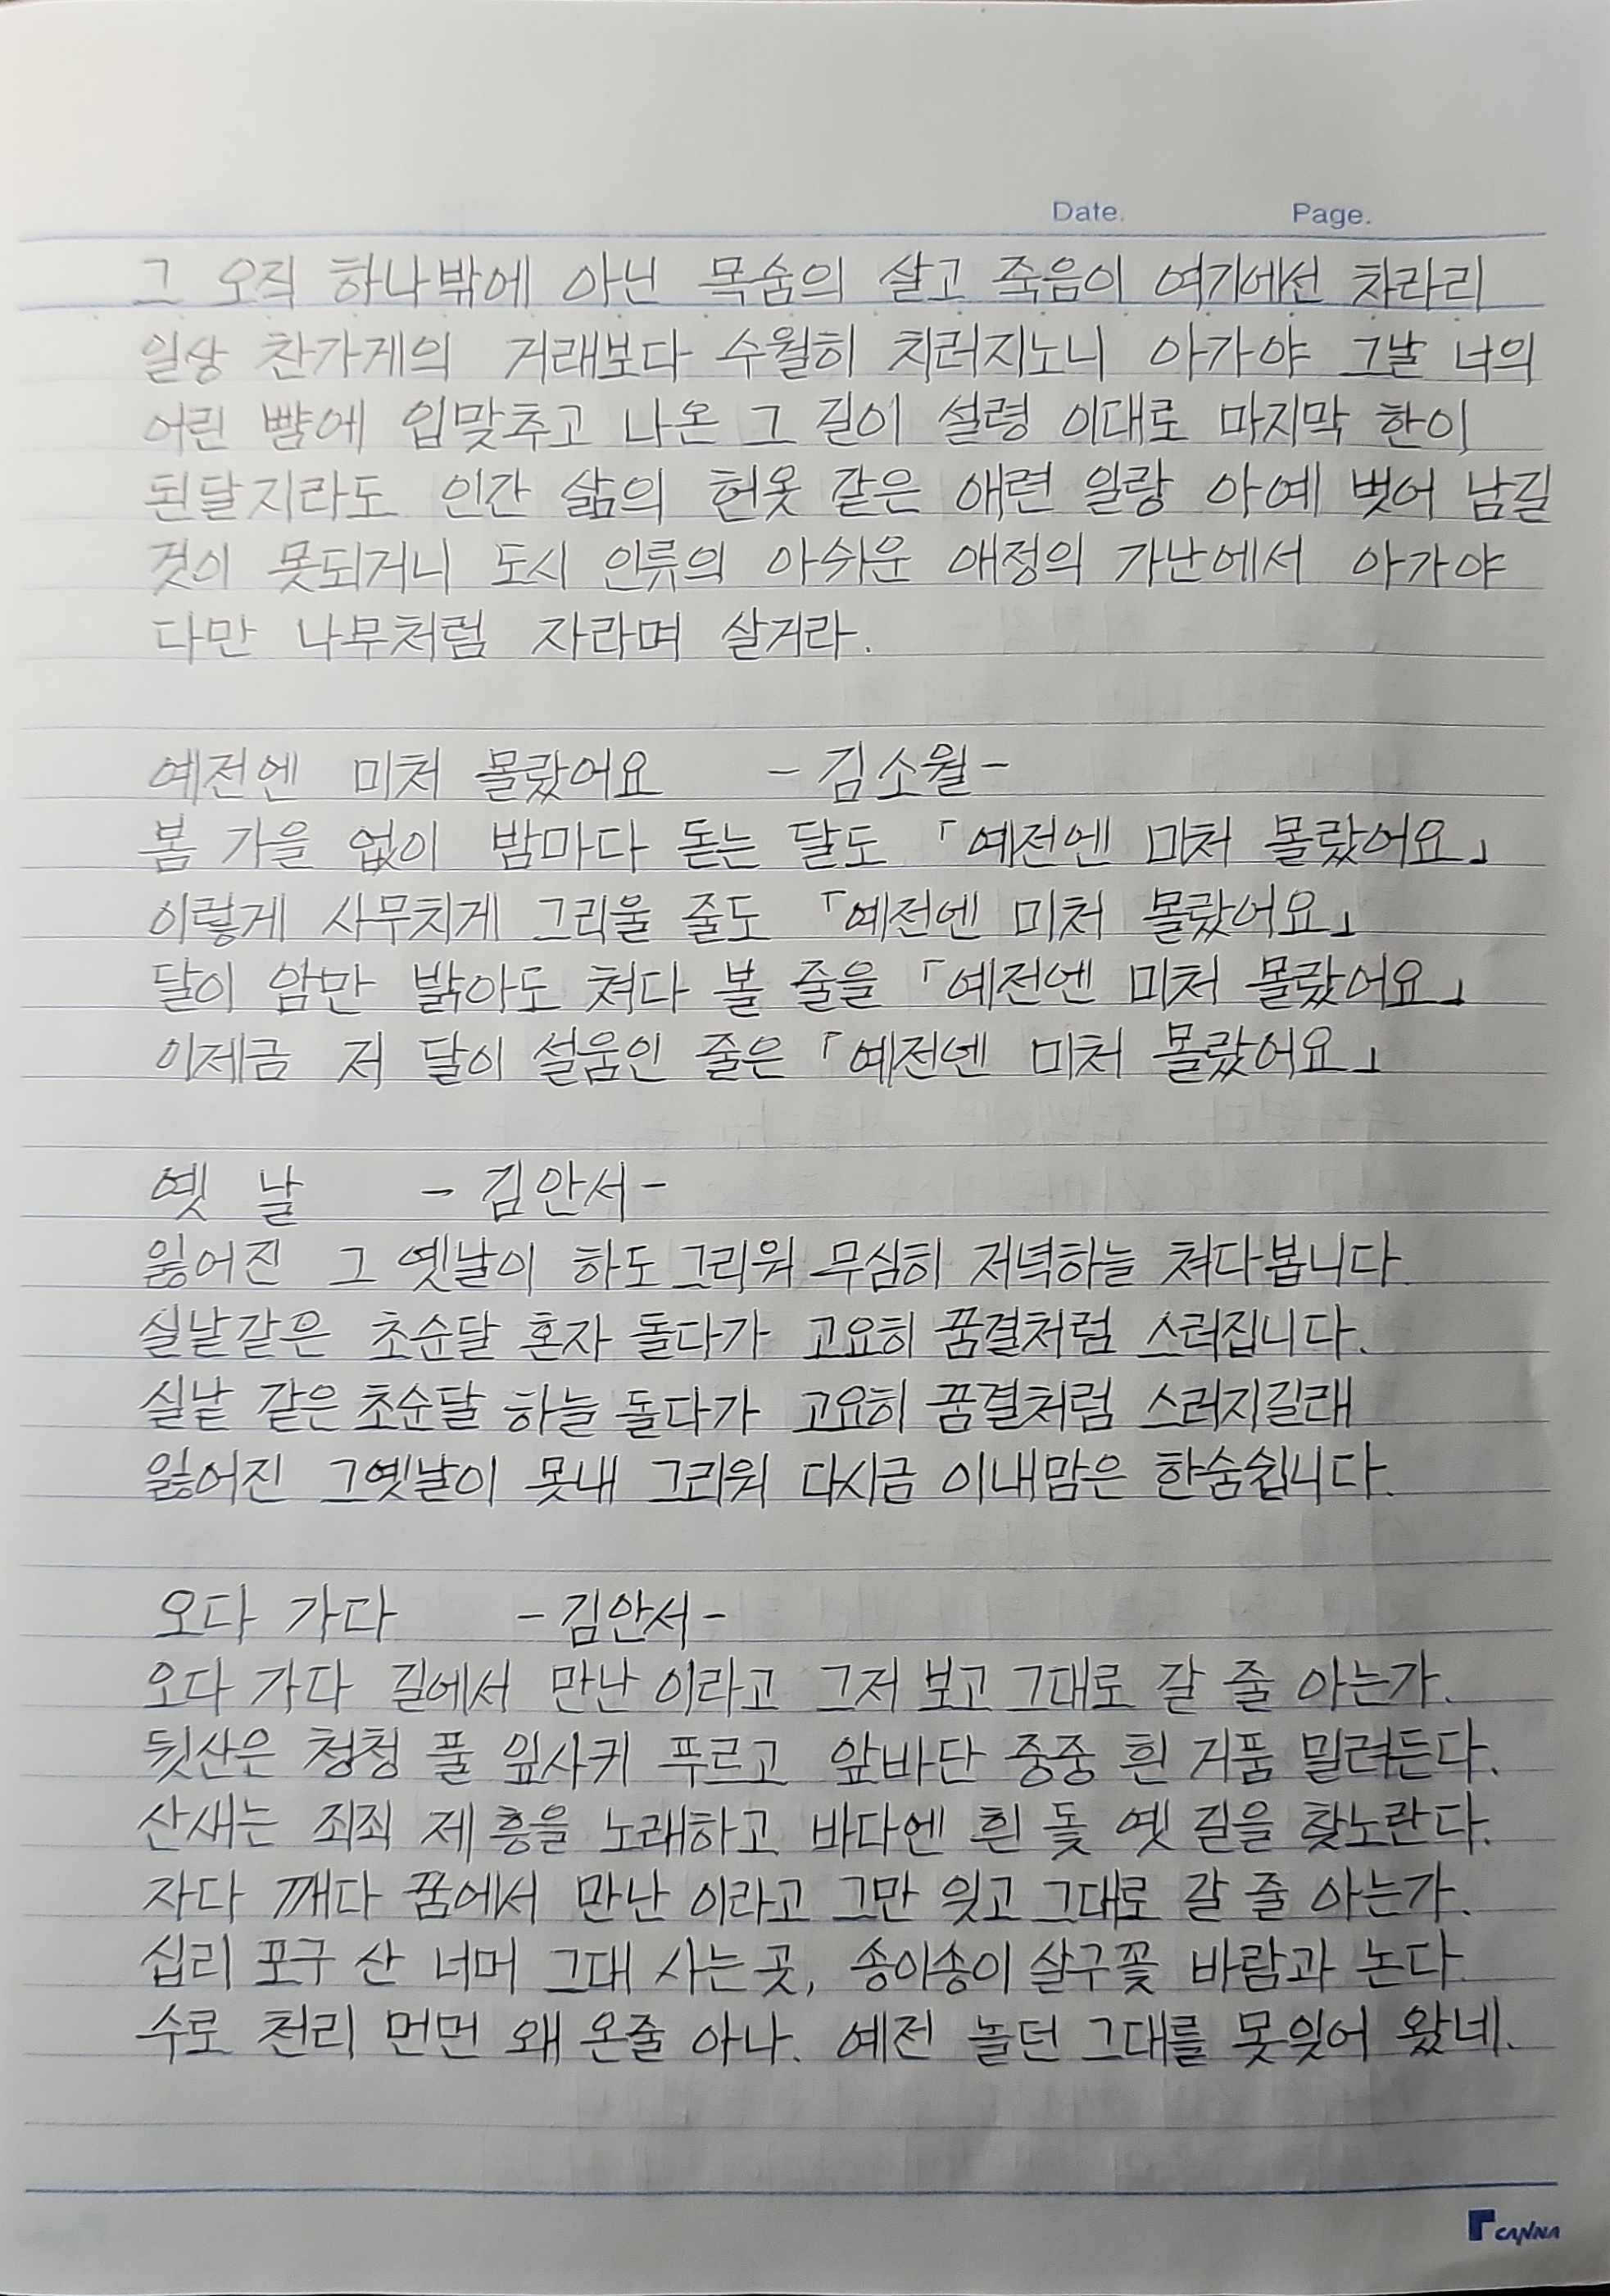 Date. Page.
그 오직 하나밖에 아닌 목숨의 살고 죽음이 여기에선 차라리
일상 찬가게의 거래보다 수월히 치러지노니 아가야 그날 너의
어린 뺨에 입맞추고 나온 그 길이 설령 이대로 마지막 한이
된달지라도 인간 삶의 헌옷 같은 애련 일랑 아예 벗어 남길
것이 못되거니 도시 인류의 아쉬운 애정의 가난에서 아가야
다만 나무처럼 자라며 살거라.
예전엔 미처 몰랐어요 -김소월-
봄 가을 없이 밤마다 돋는 달도 「예전엔 미처 몰랐어요」
이렇게 사무치게 그리울 줄도 「예전엔 미처 몰랐어요」
달이 암만 밝아도 쳐다 볼 줄을 「예전엔 미처 몰랐어요」
이제금 저 달이 설움인 줄은 「예전엔 미처 몰랐어요」
옛 날 -김안서-
잃어진 그 옛날이 하도 그리워 무심히 저녁하늘 쳐다봅니다.
실낱같은 초순달 혼자 돌다가 고요히 꿈결처럼 스러집니다.
실낱 같은 초순달 하늘 돌다가 고요히 꿈결처럼 스러지길래
잃어진 그옛날이 못내 그리워 다시금 이내맘은 한숨쉽니다.
오다 가다 -김안서-
오다 가다 길에서 만난 이라고 그저 보고 그대로 갈 줄 아는가.
뒷산은 청청 풀 잎사키 푸르고 앞바단 중중 흰 거품 밀려든다.
산새는 죄죄 제 흥을 노래하고 바다엔 흰 돛 옛 길을 찾노란다.
자다 깨다 꿈에서 만난 이라고 그만 잊고 그대로 갈 줄 아는가.
십리 포구 산 너머 그대 사는 곳, 송이송이 살구꽃 바람과 논다.
수로 천리 먼먼 왜 온줄 아나. 예전 놀던 그대를 못잊어 왔네.
CANNA